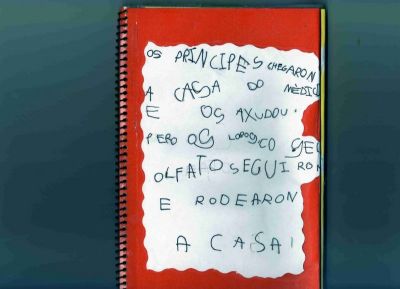 OS PRÍNCIPES CHEGARON
A CASA DO MÉDICO
E OS AXUDOU.
PERO OS LOPOS CO SEU
OLFATO SEGUIRON
E RODEARON
A CASA!